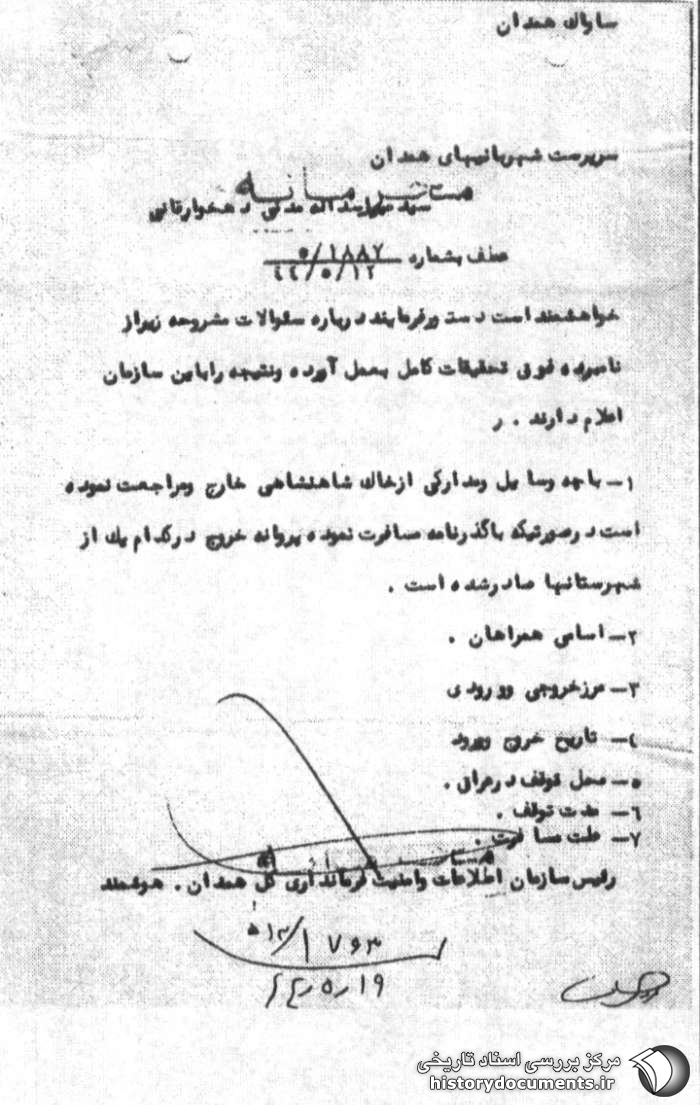 ساواك همدان
سرپرست شهربانیهای همدان
مستخبر مانه
سید میراسداله مدنی دهخوارقانی
عطف بشماره ۵/۱۸۸۷
۴۴/۵/۱۲
خواهشمند است دستور فرمایند درباره سئوالات مشروحه زیر از
نامبرده فوق تحقیقات کامل بعمل آورده ونتیجه راباین سازمان
اعلام دارند . ر
۱- باچه وسایل ومدارکی ازخاك شاهنشاهی خارج ومراجعت نموده
است درصورتیکه باگذرنامه مسافرت نموده پروانه خروج درکدام یك از
شهرستانها صادرشده است .
۲- اسامی همراهان .
۳- مرزخروجی وورودی
٤- تاریخ خروج وورود
۵- محل توقف درعراق .
٦- مدت توقف .
۷- علت مسافرت .
رئیس سازمان اطلاعات وامنیت فرمانداری کل همدان . هوشمند
۵۱۳/۱۷۶۳
۴۴٫۵٫۱۹
مرکز بررسی اسناد تاریخی
historydocuments.ir